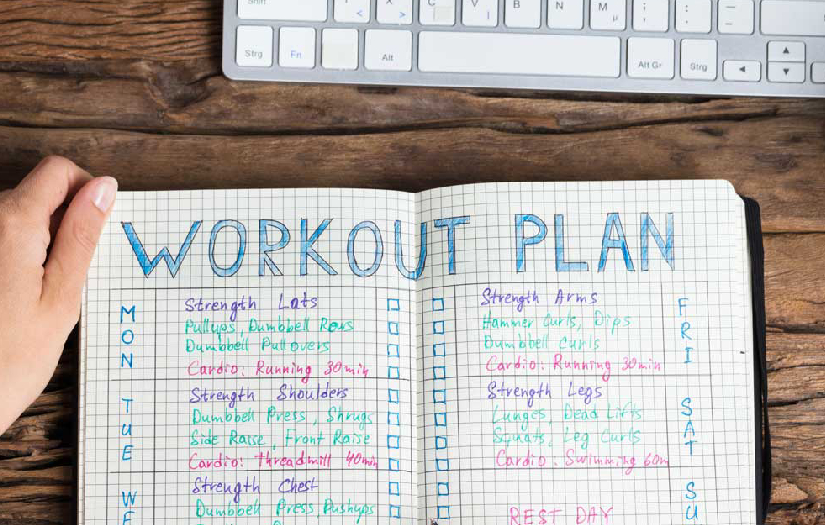 Shift
Y
X
C
V
B
N
M
µ
;
:
-
Strg
Fn
<
Alt
Alt Gr
Strg
WORKOUT PLAN
MON
Strength Lats
Pullups, Dumbbell Rows
Dumbbell Pullovers
Cardio: Running 30min
TUE
Strength Shoulders
Dumbbell Press, Shrugs
Side Raise, Front Raise
Cardio: threadmill 40min
WE
Strength Chest
Dumbbell Press Pushups
FRI
Strength Arms
Hammer Curls, Dips
Dumbbell Curls
Cardio: Running 30min
SAT
Strength Legs
Lunges, Dead Lifts
Squats, Leg Curls
Cardio: Swimming 60m
SU
REST DAY